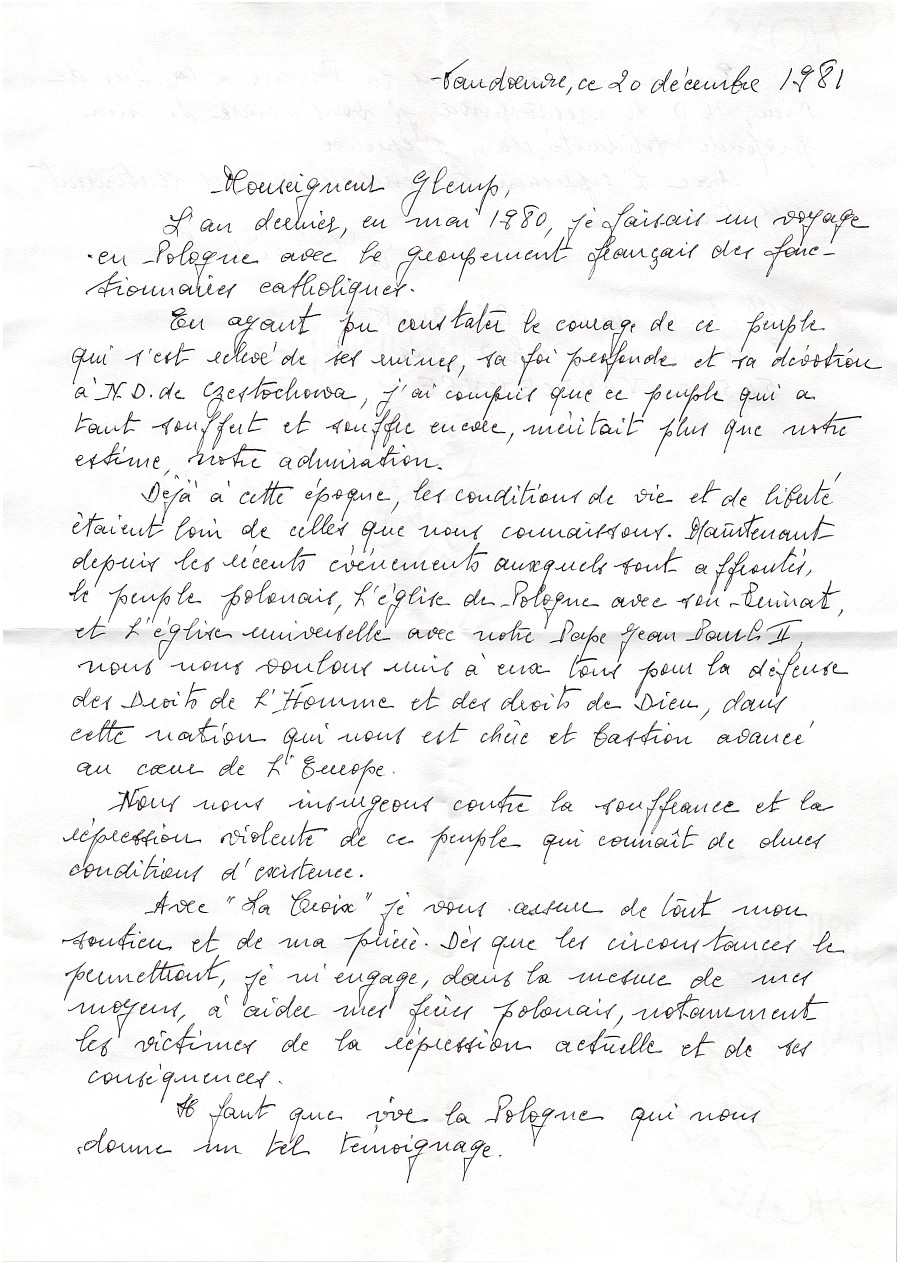 Vandœuvre, ce 20 décembre 1981
Monseigneur Glemp,
L'an dernier, en mai 1980, je faisais un voyage
en Pologne avec le groupement français des fonc-
tionnaires catholiques.
En ayant pu constater le courage de ce peuple
qui s'est relevé de ses ruines, sa foi profonde et sa dévotion
à N.D. de Czestochowa, j'ai compris que ce peuple qui a
tant souffert et souffre encore, méritait plus que notre
estime, notre admiration.
Déjà à cette époque, les conditions de vie et de liberté
étaient loin de celles que nous connaissons. Maintenant
depuis les récents événements auxquels sont affrontés,
le peuple polonais, l'église de Pologne avec son Primat,
et l'église universelle avec notre Pape Jean Paul II,
nous nous voulons unis à eux tous pour la défense
des Droits de l'Homme et des droits de Dieu, dans
cette nation qui nous est chère et bastion avancé
au cœur de l'Europe.
Nous nous insurgeons contre la souffrance et la
répression violente de ce peuple qui connaît de dures
conditions d'existence.
Avec "La Croix" je vous assure de tout mon
soutien et de ma prière. Dès que les circonstances le
permettront, je m'engage, dans la mesure de mes
moyens, à aider mes frères polonais, notamment
les victimes de la répression actuelle et de ses
conséquences.
Il faut que vive la Pologne qui nous
donne un tel témoignage.